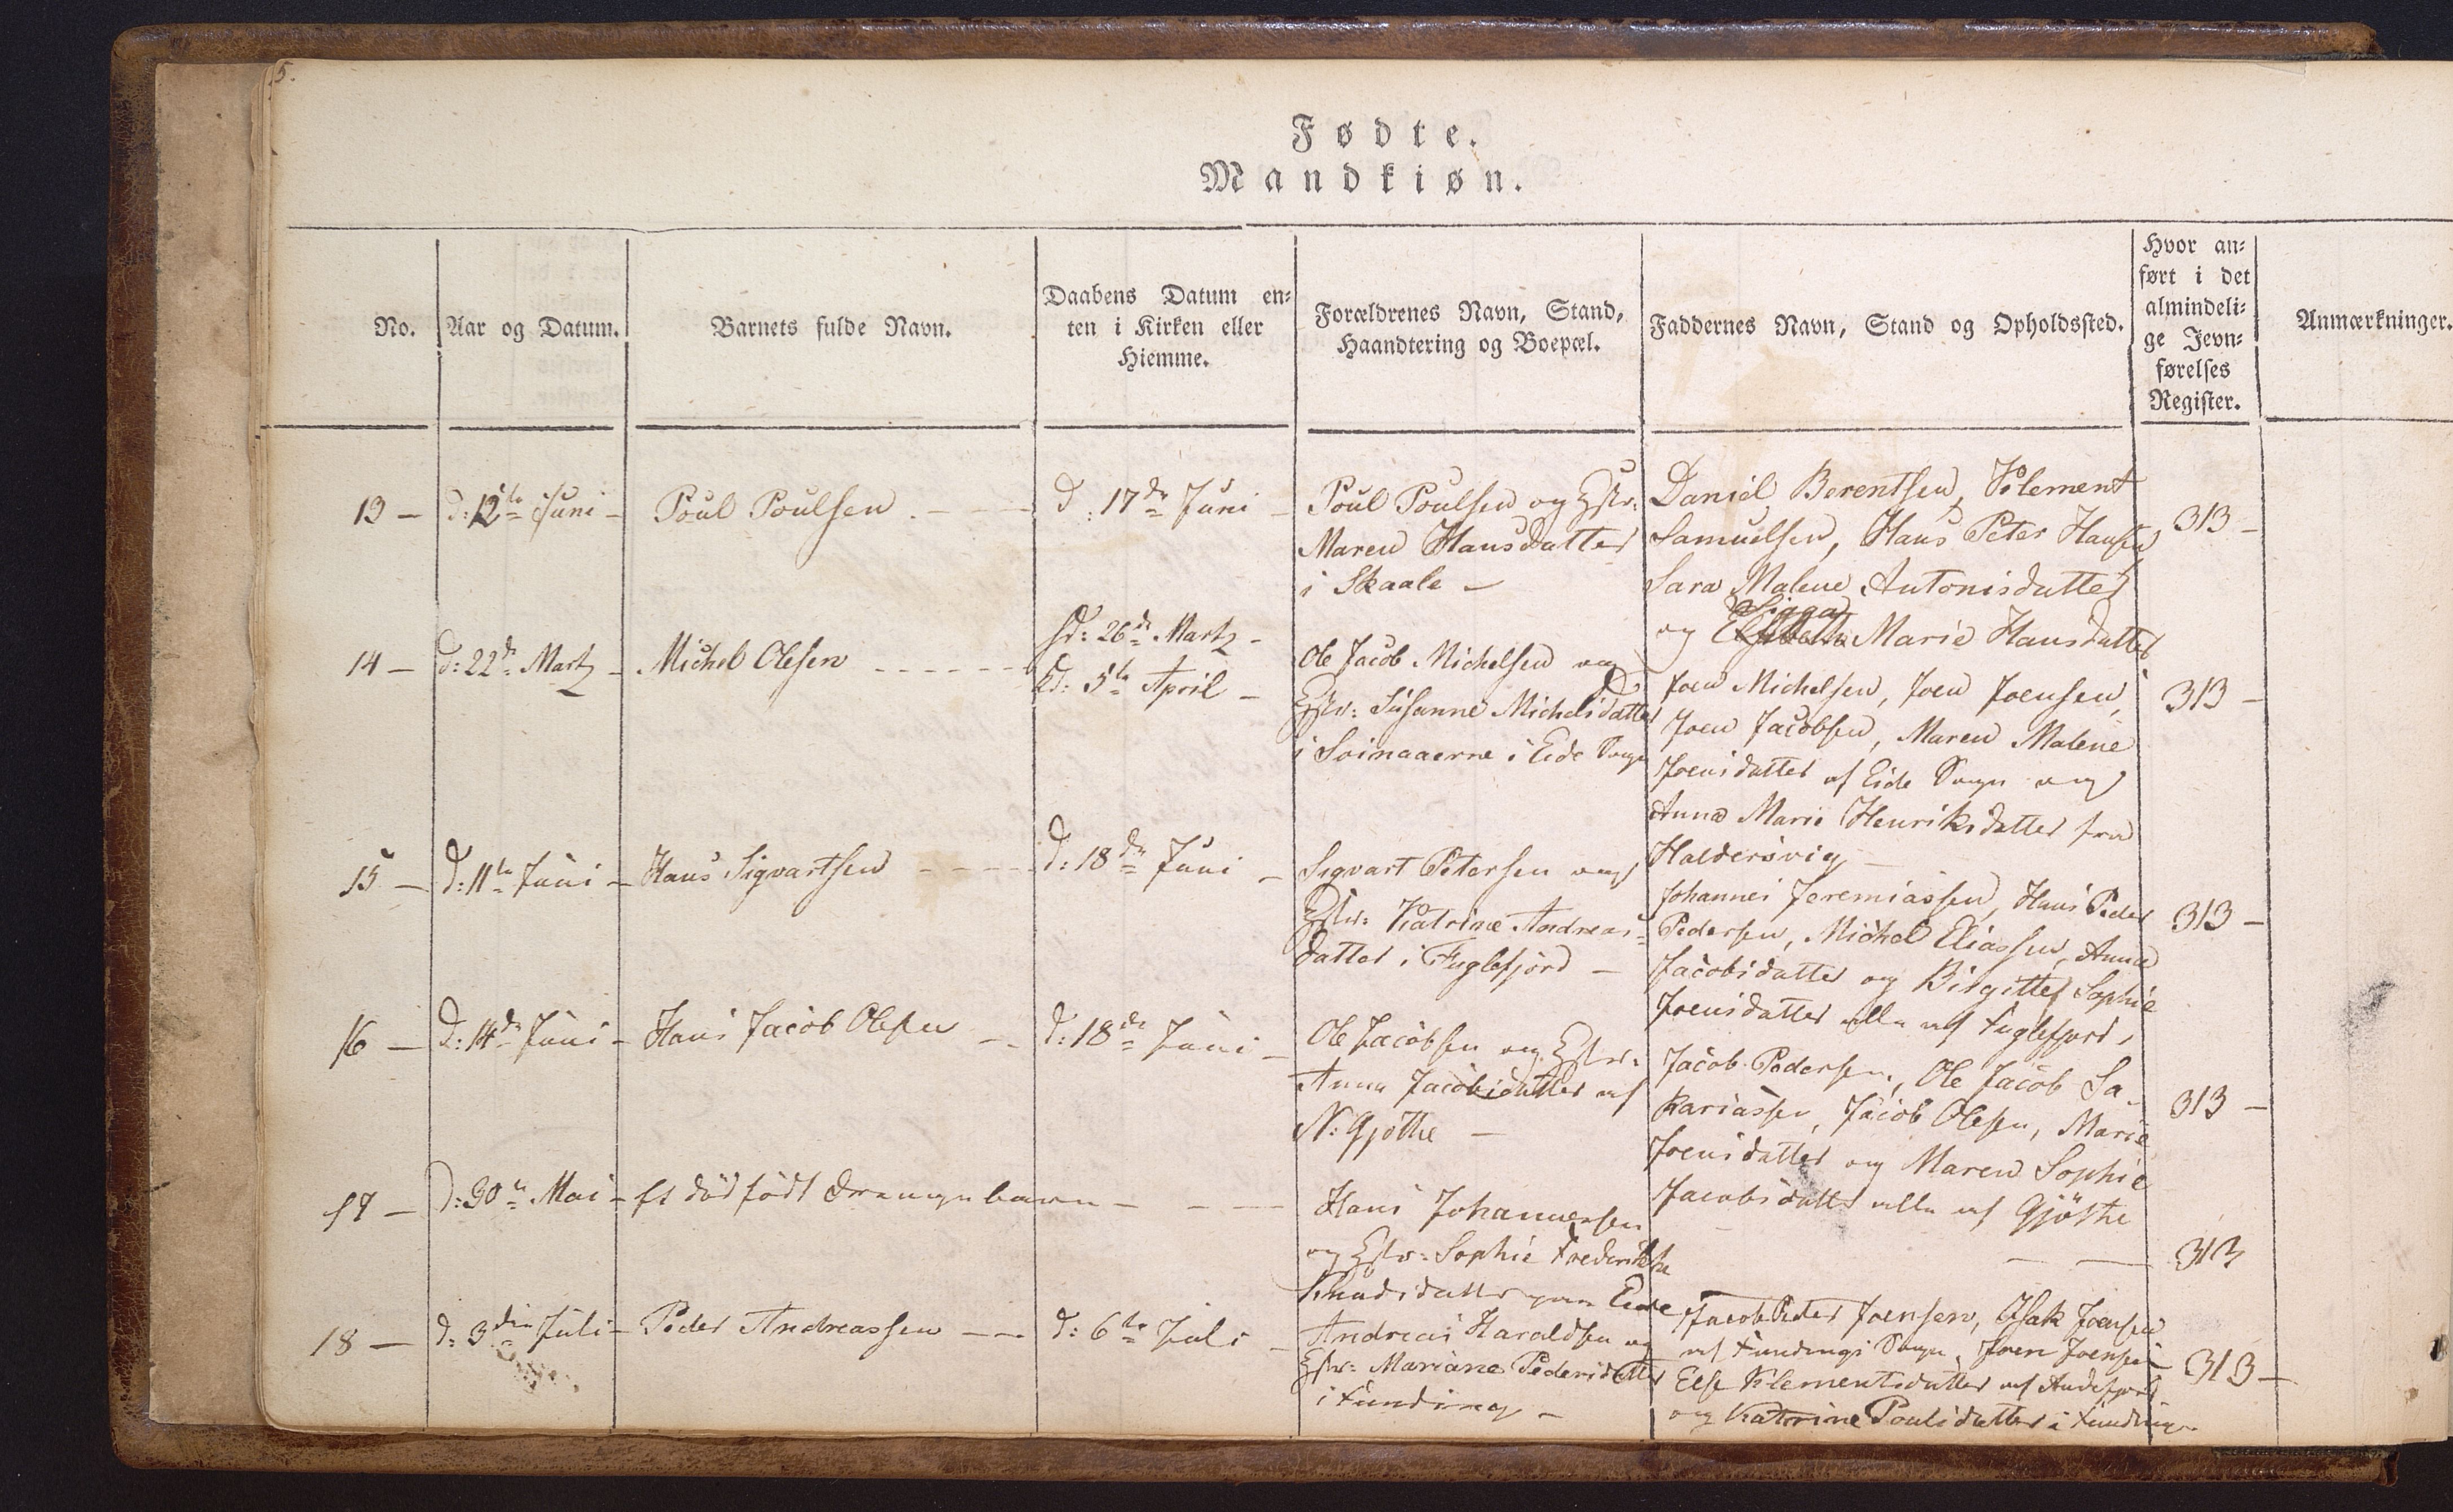 5.
Fødte.
Mandkiøn.
No.
Aar og Datum.
Barnets fulde Navn.
Daabens Datum en=
ten i Kirken eller
Hiemme.
Forældrenes Navn, Stand,
Haandtering og Boepæl.
Faddernes Navn, Stand og Opholdssted.
Hvor an=
ført i det
almindeli=
ge Jevn=
førelses
Register.
Anmærkninger.
13 –
d: 12te Juni –
Poul Poulsen
d. 17de Juni –
Poul Poulsen og Hstr:
Maren Hansdatter
i Skaale –
Daniel Berentsen, Klement
Samuelsen, Hans Peter Hansen,
Sara Malene Antonisdatter
Sigga
og Elsebeth Marie Hansdatter
313 –
14 –
d: 22de Martz –
Michel Olesen
d: 26de Martz –
d: 5te April –
Ole Jacob Michelsen og
Hstr: Susanne Michelsdatter
i Svinaaerne i Eide Sogn
Joen Michelsen, Joen Joensen,
Joen Jacobsen, Maren Malene
Joensdatter af Eide Sogn og
Anna Marie Henriksdatter fra
Haldersvig –
313 –
15 –
d: 11te Juni –
Hans Sigvartsen
d: 18de Juni –
Sigvart Petersen og
Hstr: Katrine Andreas=
datter i Fuglefjord –
Johannes Jeremiassen, Hans Peder
Pedersen, Michel Eliassen, Anna
Jacobsdatter og Birgitte Sophie
Joensdatter alle af Fuglefjord,
313 –
16 –
d: 14de Juni –
Hans Jacob Olesen
d: 18de Juni –
Ole Jacobsen og Hstr:
Anna Jacobsdatter af
N: Gjøthe –
Jacob Pedersen, Ole Jacob Sa-
kariassen, Jacob Olesen, Marie
Joensdatter og Maren Sophie
Jacobsdatter alle af Gjøthe
313 –
17 –
d: 30te Mai –
Et dødfødt Drengebarn –
Hans Johannessen
og Hstr: Sophie Frederikke
Knudsdatter paa Eide
313
18 –
d: 3die Juli –
Peder Andreassen
d: 6te Juli –
Andreas Haraldsen og
Hstr: Mariane Pedersdatter
i Funding –
Jacob Peter Joensen, Isak Joensen
af Fundings Sogn, Joen Joensen
Else Klementsdatter af Andefjord
og Katrine Poulsdatter i Funding
313 –